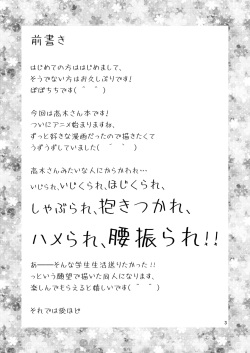 前書き
はじめての方ははじめまして、
そうでない方はお久しぶりです!
ぽぽちちです(＾＾)
今回は高木さん本です!
ついにアニメ始まりますね、
ずっと好きな漫画だったので描きたくて
うずうずしていました(＾＾)
高木さんみたいな人にからかわれ…
いじられ、いじくられ、ほじくられ、
しゃぶられ、抱きつかれ、
ハメられ、腰振られ!!
あーーそんな学生生活送りたかった!!
っという願望で描いた同人になります、
楽しんでもらえると嬉しいです(＾＾)
それでは後ほど
3